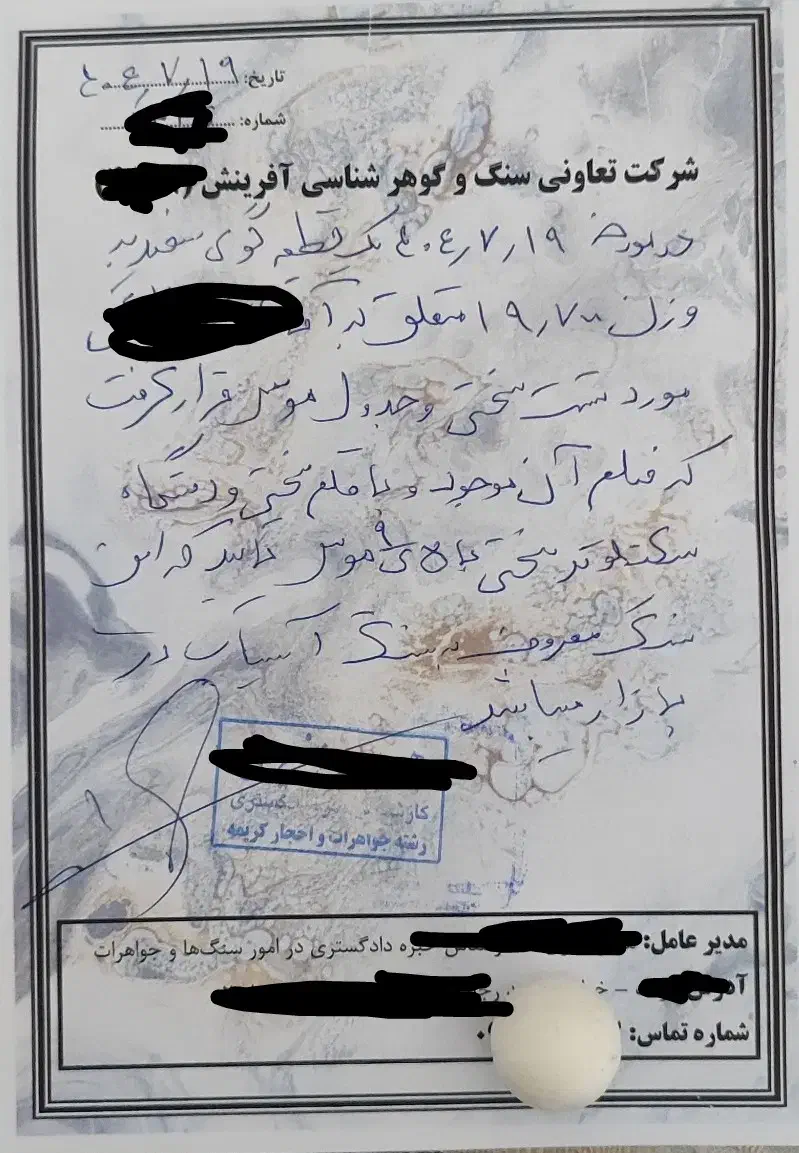 تاریخ: ۴۰۴٫۷٫۱۹
شماره:
شرکت تعاونی سنگ و گوهر شناسی آفرینش
در مورخ ۴۰۴٫۷٫۱۹ یک قطعه گوی سفید به
وزن ۱۹٫۷ متعلق به
مورد تست سختی و جدول موس قرار گرفت
که فیلم آن موجود و با قلم سختی و دستگاه
تستر سختی بالای ۹ موس که این
سنگ معروف به سنگ آسیاب در
بازار میباشد
رشته جواهرات و احجار کریمه
مدیر عامل: خبره دادگستری در امور سنگ‌ها و جواهرات
شماره تماس: